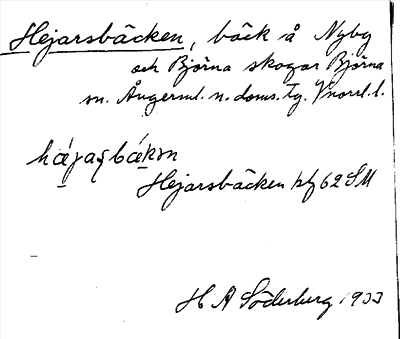 Hejarsbäcken, bäck å Nybg
och Björna skogar Björna
sn. Ångerml. n. doms. tg. Vnorrl. l.
häjasbäkən
Hejarsbäcken kf 62 SM
H A Söderberg 1933